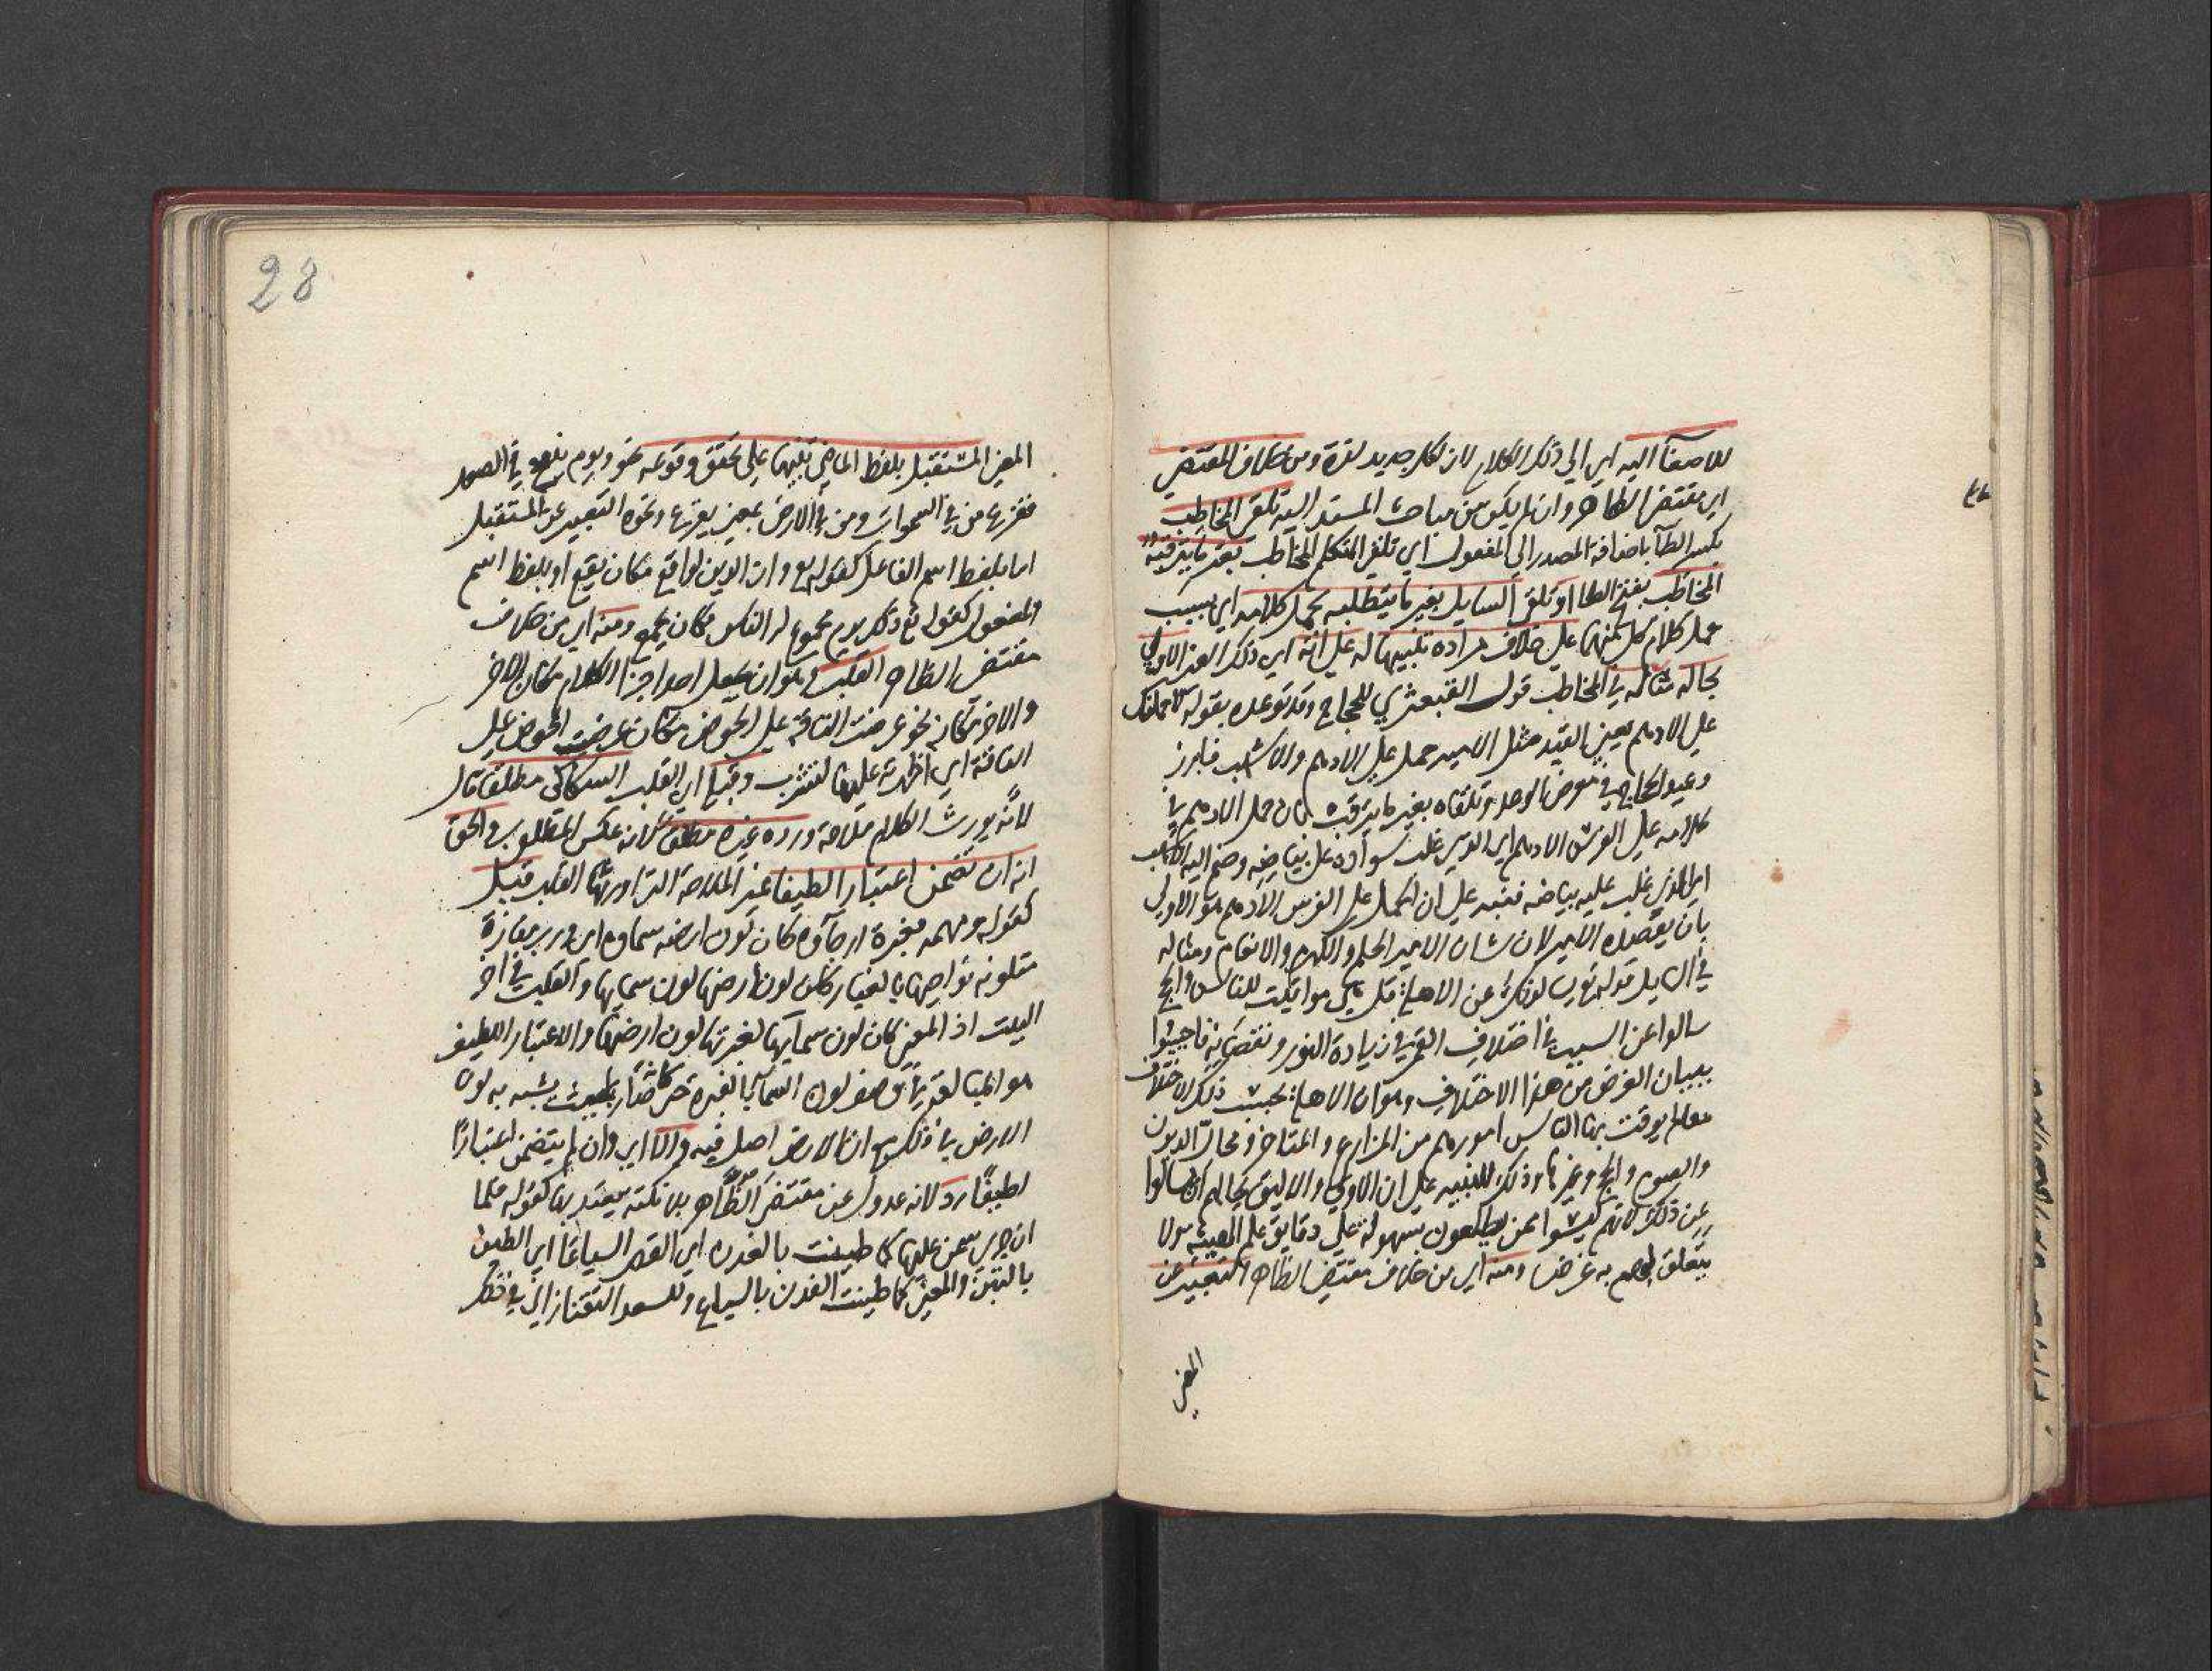 للاصغاء اليه اي الي ذلك الكلام لان لكل جديد لذة ومن خلاف المقتضي
اي مقتضي الظاهر وان لم يكن من مباحث المسند اليه تلقي المخاطب
بكسر الطآ باضافة المصدر الي المفعول اي تلقي المتكلم المخاطب بغير ما يترقبه
المخاطب بفتح الطا او تلقي السايل بغير ما يتطلبه بحمل كلامه اي بسبب
حمل كلام كل منهما علي خلاف مراده تنبيها له علي انه اي ذلك الغير الاولي
بحاله مثاله في المخاطب قول القبعثري للحجاج وقد توعده بقوله لاحملنك
علي الادهم يعني القيد مثل الامير حمل علي الادهم والاشهب فابرز
وعيد الحجاج في معرض الوعد وتلقاه بغير ما يترقب بان حمل الادهم في
كلامه علي الفرس الادهم اي الذي غلب سواده علي بياضه وضم اليه الاشهب
اي الذي غلب عليه بياضه فنبه علي ان الحمل علي الفرس الادهم هو الاولي
بان يقصده الامير لان شان الامير الحلم والكرم والانعام ومثاله
في السايل قوله تع يسالونك عن الاهلة قل هي مواقيت للناس والحج
سالوا عن السبب في اختلاف القمر في زيادة النور ونقصانه فاجيبوا
ببيان الغرض من هذا الاختلاف وهو ان الاهلة بحسب ذلك الاختلاف
معالم يوقت بها الناس امورهم من المزارع والمتاجر ومحال الديون
والصوم والحج وغيرها وذلك للتنبيه علي ان الاولي والاليق بحالهم ان يسالوا
عن ذلك لانهم ليسوا ممن يطلعون بسهولة علي دقايق علم الهيئة ولا
يتعلق لهم به غرض ومنه اي من خلاف مقتضي الظاهر التعبير عن
المعني
28
المعني المستقبل بلفظ الماضي تنبيها علي تحقق وقوعه نحو ويوم ينفخ في الصور
ففزع من في السموات ومن في الارض بمعني يفزع ونحوه التعبير عن المستقبل
اما بلفظ اسم الفاعل كقوله تع وان الدين لواقع مكان يقع او بلفظ اسم
المفعول كقوله تع ذلك يوم مجموع له الناس مكان يجمع ومنه اي من خلاف
مقتضي الظاهر القلب وهو ان يجعل احد اجزا الكلام مكان الاخر
والاخر مكانه نحو عرضت الناقة علي الحوض مكان عرضت الحوض علي
الناقة اي اظهرته عليها لتشرب وقبله اي القلب السكاكي مطلقا قال
لانه يورث الكلام ملاحة ورده غيره مطلقا لانه عكس المطلوب والحق
انه ان تضمن اعتبارا لطيفا غير الملاحة التي اورثها القلب قبل
كقوله ومهمه مغبرة ارجآؤه كان لون ارضه سماوه اي ورب مفازة
متلونه نواحيها بالغبار كان لون ارضها لون سمايها والقلب في اخر
البيت اذ المعني كان لون سمآيها لغبرتها لون ارضها والاعتبار اللطيف
هو المبالغة في وصف لون السمآ بالغبرة حتي كانه صار بحيث يشبه به لون
الارض في ذلك مع ان الارض اصل فيه والا اي وان لم يتضمن اعتبارا
لطيفا رد لانه عدول عن مقتضي الظاهر بلا نكتة يعتد بها كقوله فلما
ان جري سمن عليها كما طينت بالفدن اي القصر السياعا اي الطين
بالتبن والمعني كما طينت الفدن بالسياع وللسعد التفتازاني في ذلك